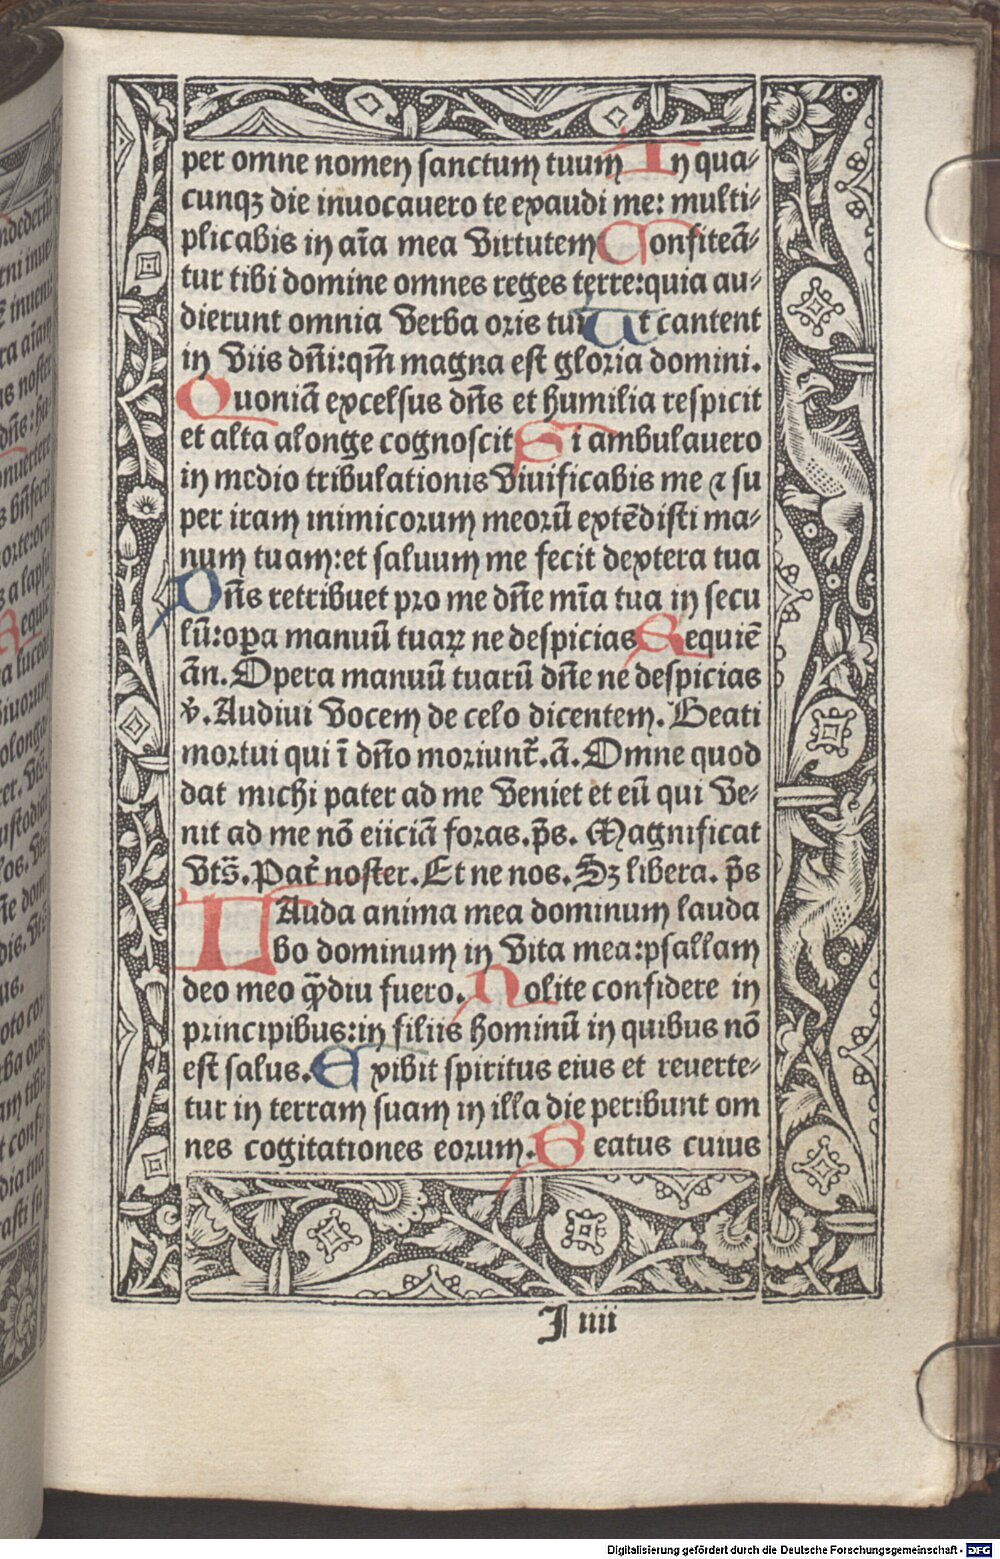 per omne nomen sanctum tuum In qua⸗
cunqꝫ die inuocauero te exaudi me: multi⸗
plicabis in aīa mea virtutem Confiteā⸗
tur tibi domine omnes reges terre:quia au⸗
dierunt omnia verba oris tui Ut cantent
in viis dñi:qm̄ magna est gloria domini.
Quoniā excelsus dñs et humilia respicit
et alta alonge cognoscit Si ambulauero
in medio tribulationis viuificabis me ⁊ su
per iram inimicorum meorū extēdisti ma⸗
num tuam:et saluum me fecit dextera tua
Dñs retribuet pro me dñe mīa tua in secu
lū:oꝑa manuū tuaꝝ ne despicias Requiē
ān. Opera manuū tuarū dñe ne despicias
v̄. Audiui vocem de celo dicentem. Beati
mortui qui ī dño moriunt̄. ā. Omne quod
dat michi pater ad me veniet et eū qui ve⸗
nit ad me nō eiiciā foras. p̄s. Magnificat
vts̄. Pat̄ noster. Et ne nos. Sꝫ libera. p̄s
LAuda anima mea dominum lauda
bo dominum in vita mea:psallam
deo meo q̄diu fuero. Nolite confidere in
principibus:in filiis hominū in quibus nō
est salus. Exibit spiritus eius et reuerte⸗
tur in terram suam in illa die peribunt om
nes cogitationes eorum. Beatus cuius
I iiii
Digitalisierung gefördert durch die Deutsche Forschungsgemeinschaft - DFG